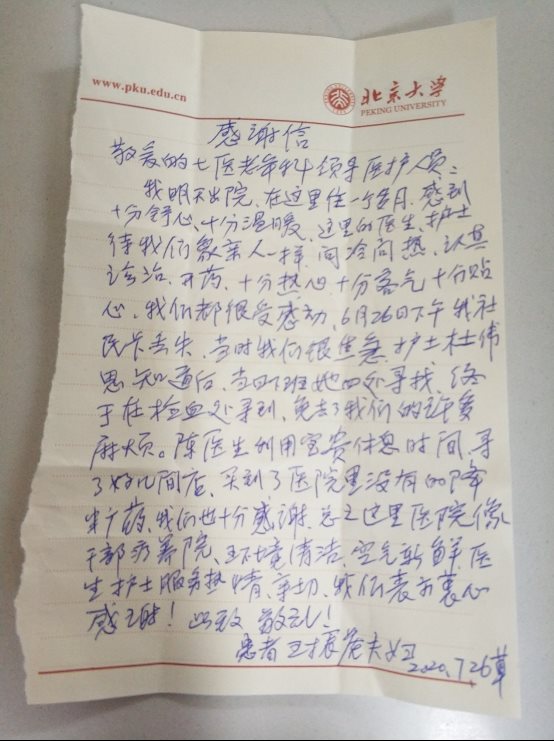 www.pku.edu.cn
北京大学
PEKING UNIVERSITY
感谢信
敬爱的七医老年科领导医护人员:
我明天出院,在这里住一个月,感到
十分舒心、十分温暖,这里的医生、护士
待我们象亲人一样,问冷问热,认真
诊治,开药,十分热心十分客气十分贴
心,我们都很受感动,6月26日下午我社
民卡丢失,当时我们很焦急,护士杜伟
思知道后,当日下班她四处寻找,终
于在检血处寻到,免去了我们的许多
麻烦。陈医生利用宝贵休息时间,寻
了好几间店,买到了医院里没有的降
药,我们也十分感谢,总之这里医院像
干部疗养院,环境清洁,空气新鲜医
生护士服务热情、亲切,我们表示衷心
感谢!此致 敬礼!
患者 王振 夫妇
2020.7.26草